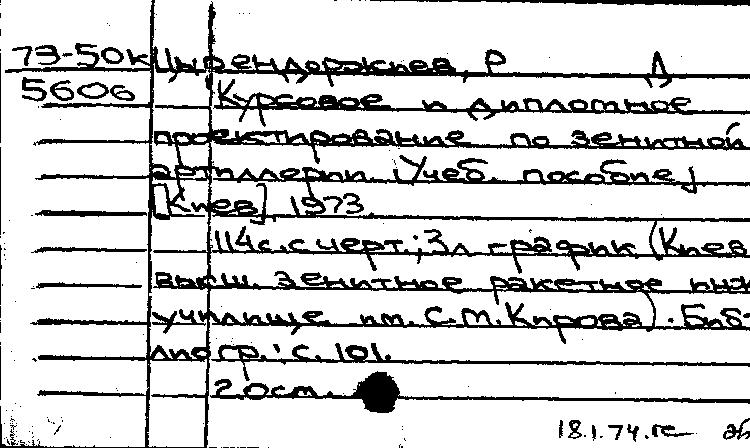 73-50к Цырендоржиев, Р Д
5606 Курсовое и дипломное
проектирование по зенитной
артиллерии. (Учеб. пособие)
[Киев], 1973.
114с. с черт.; 3л график (Киев
высш. зенитное ракетное инж
училище им. С.М. Кирова). Биб-
лиогр.: с. 101.
2.0ст.
18.1.74.